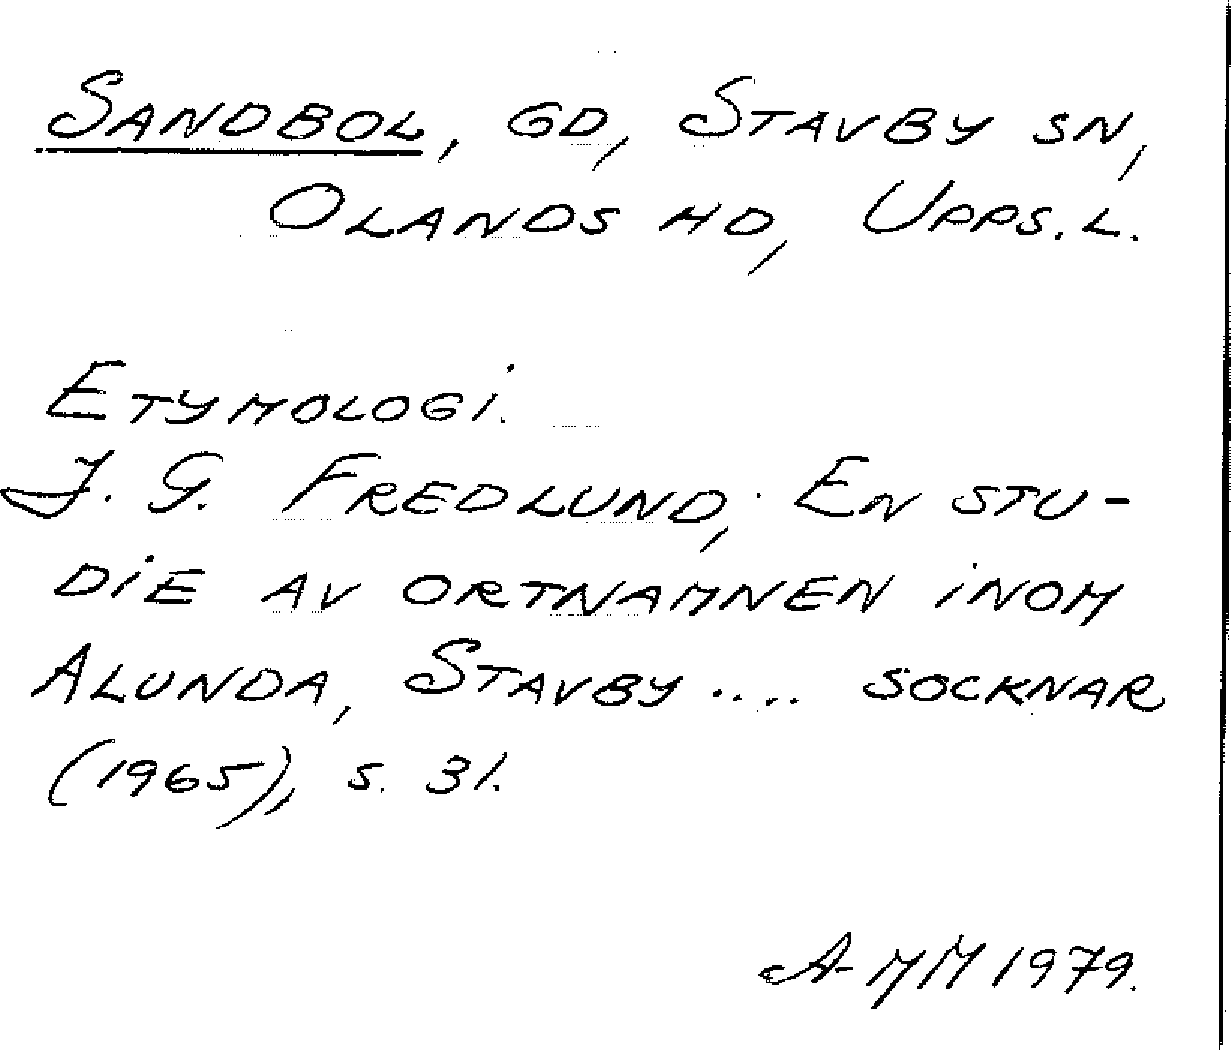 SANDBOL, GD, STAVBY SN,
OLANDS HD, UPPS. L.
ETYMOLOGI.
J. G. FREDLUND, EN STU-
DIE AV ORTNAMNEN INOM
ALUNDA, STAVBY .... SOCKNAR
(1965), S. 31.
A-MM 1979.